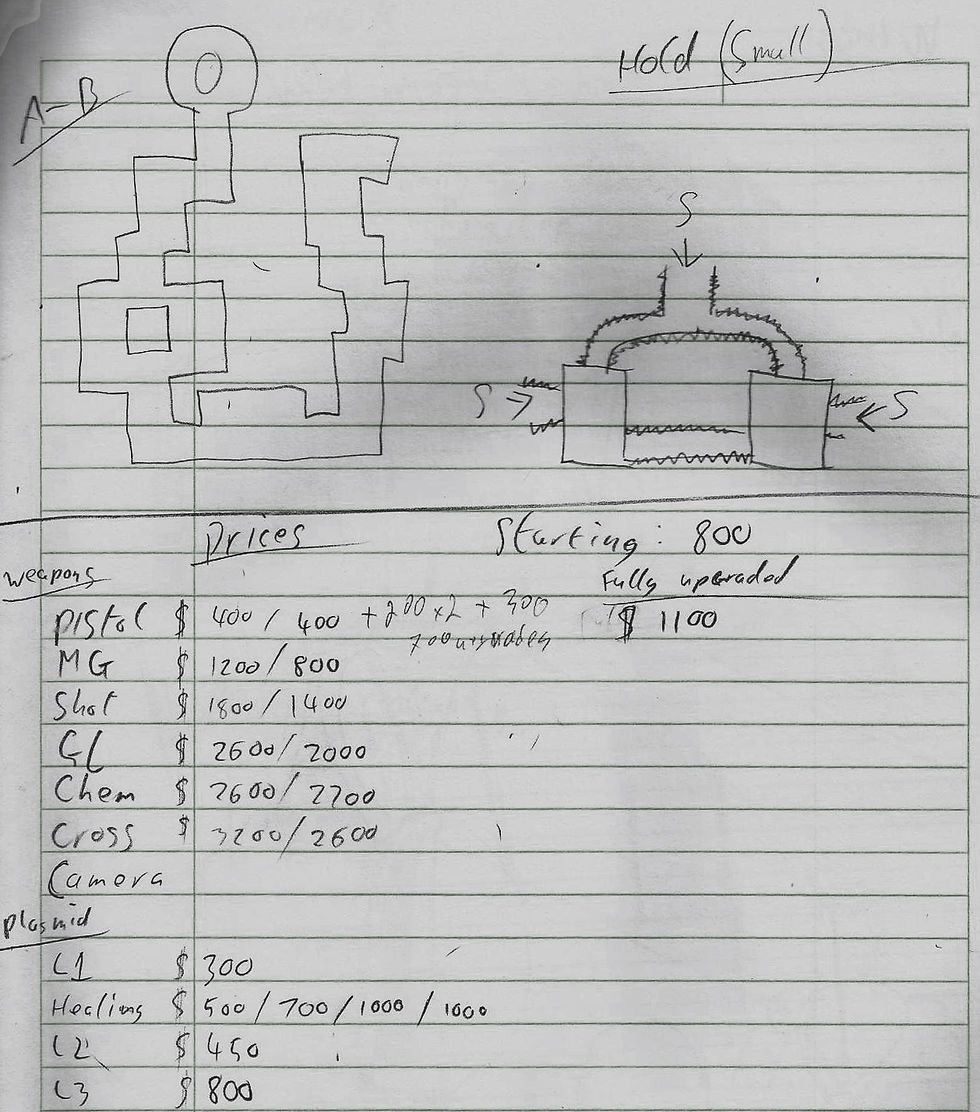 Hold (Small)
A-B
S
S
S
Prices Starting: 800
weapons Fully upgraded
Pistol $ 400 / 400 +200 x2 + 300 $ 1100
700 upgrades
MG $ 1200 / 800
Shot $ 1800 / 1400
GL $ 2600 / 2000
Chem $ 2600 / 2200
Cross $ 3200 / 2600
Camera
Plasmid
L1 $ 300
Healing $ 500 / 700 / 1000 / 1000
L2 $ 450
L3 $ 800